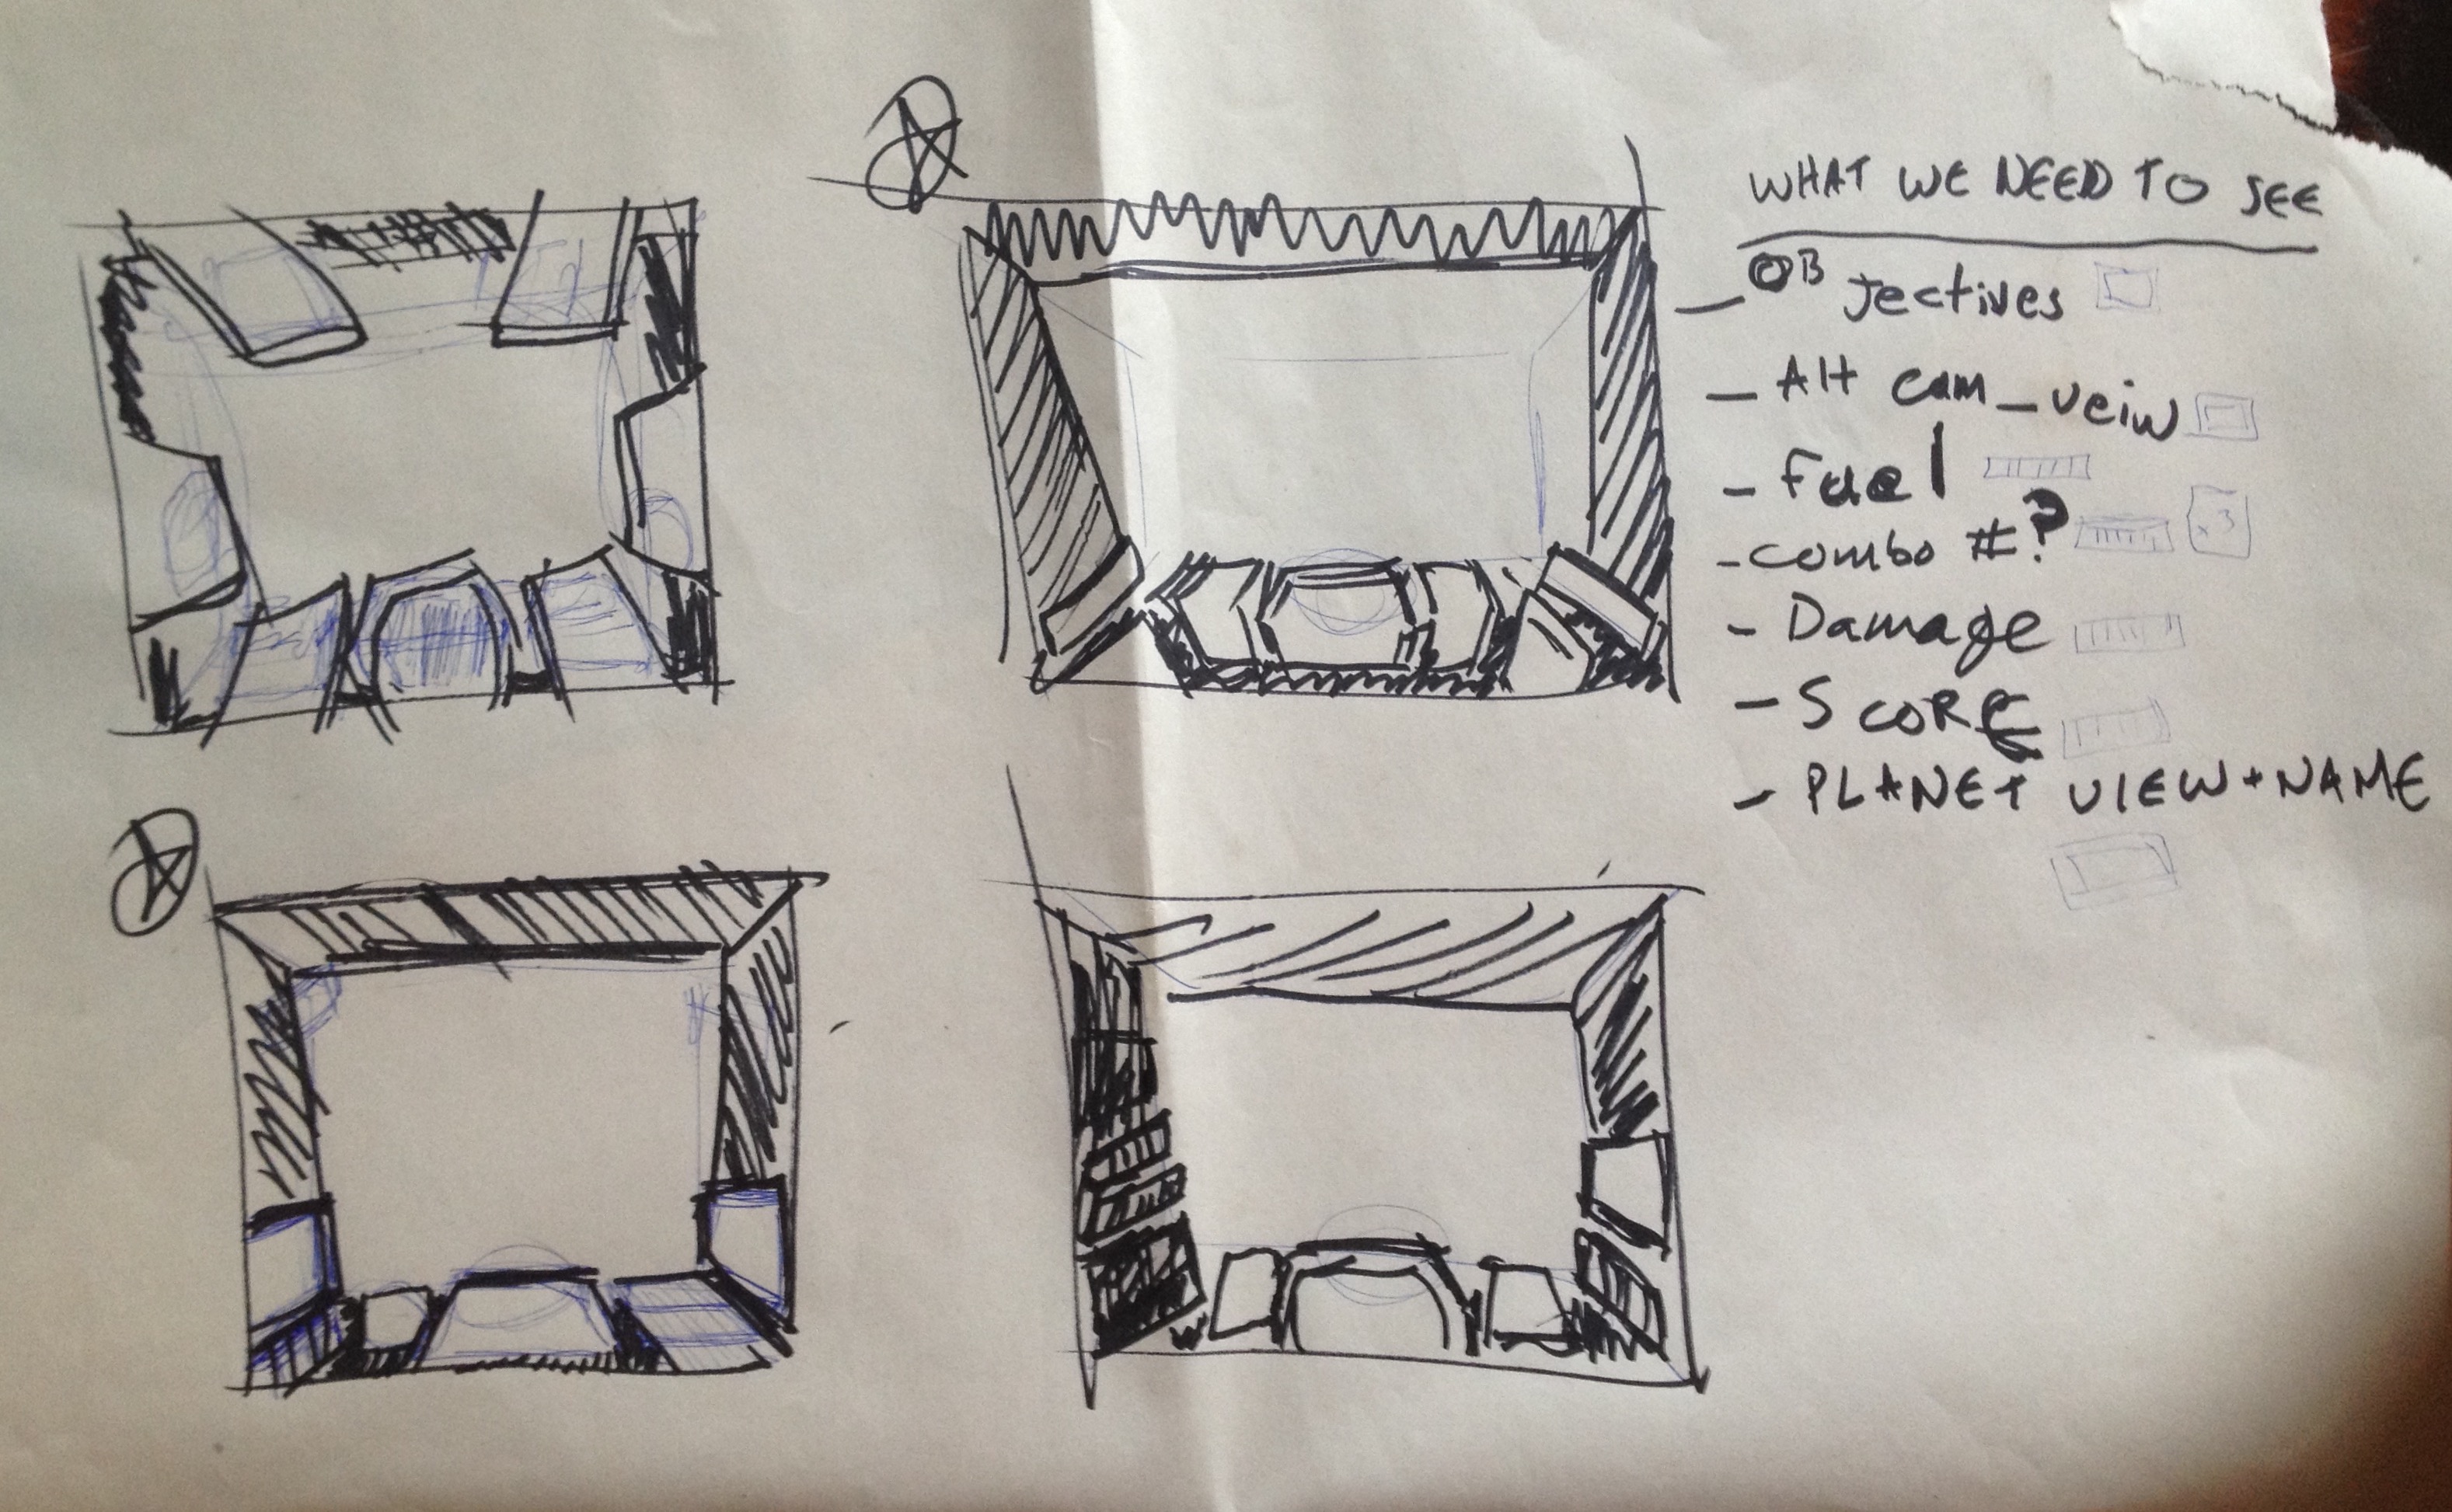 WHAT WE NEED TO SEE
- OBjectives
- Alt cam_veiw
- Fuel
- combo #?
x3
- Damage
- SCORE
- PLANET VIEW + NAME